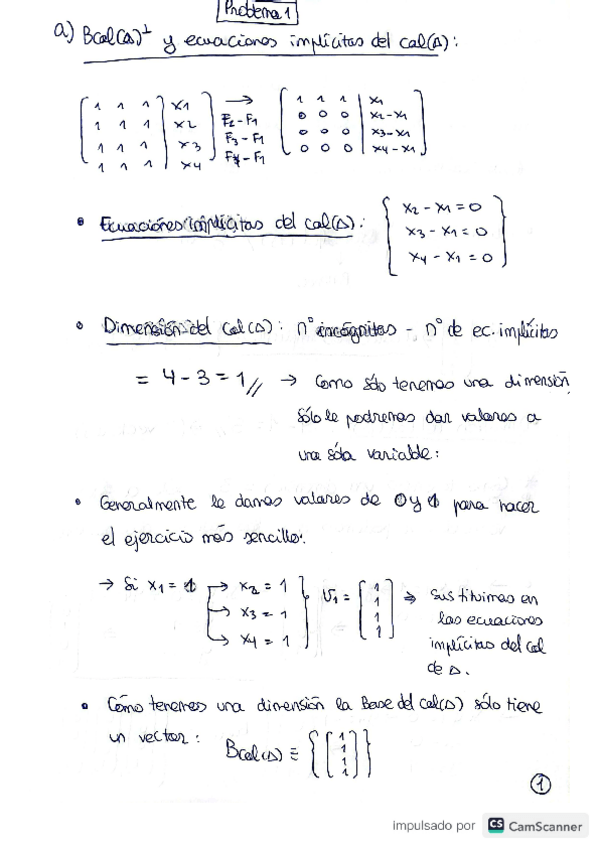 Problema 1
a) Bcol(A)⊥ y ecuaciones implícitas del col(A):
[1 1 1 | x1] → [1 1 1 | x1]
[1 1 1 | x2] F2-F1 [0 0 0 | x2-x1]
[1 1 1 | x3] F3-F1 [0 0 0 | x3-x1]
[1 1 1 | x4] F4-F1 [0 0 0 | x4-x1]
• Ecuaciones implícitas del col(A): { x2 - x1 = 0
x3 - x1 = 0
x4 - x1 = 0 }
• Dimensión del Col(A): nº incógnitas - nº de ec. implícitas
= 4 - 3 = 1 // → Como sólo tenemos una dimensión
sólo le podremos dar valores a
una sóla variable:
• Generalmente le damos valores de 0 y 1 para hacer
el ejercicio más sencillo:
→ Si x1 = 1 → x2 = 1
→ x3 = 1
→ x4 = 1 } v1 = [1 1 1 1] ⇒ Sustituimos en
las ecuaciones
implícitas del col
de A.
• Cómo tenemos una dimensión la Base del Col(A) sólo tiene
un vector: Bcol(A) ≡ {[1 1 1 1]}
1
impulsado por CS CamScanner